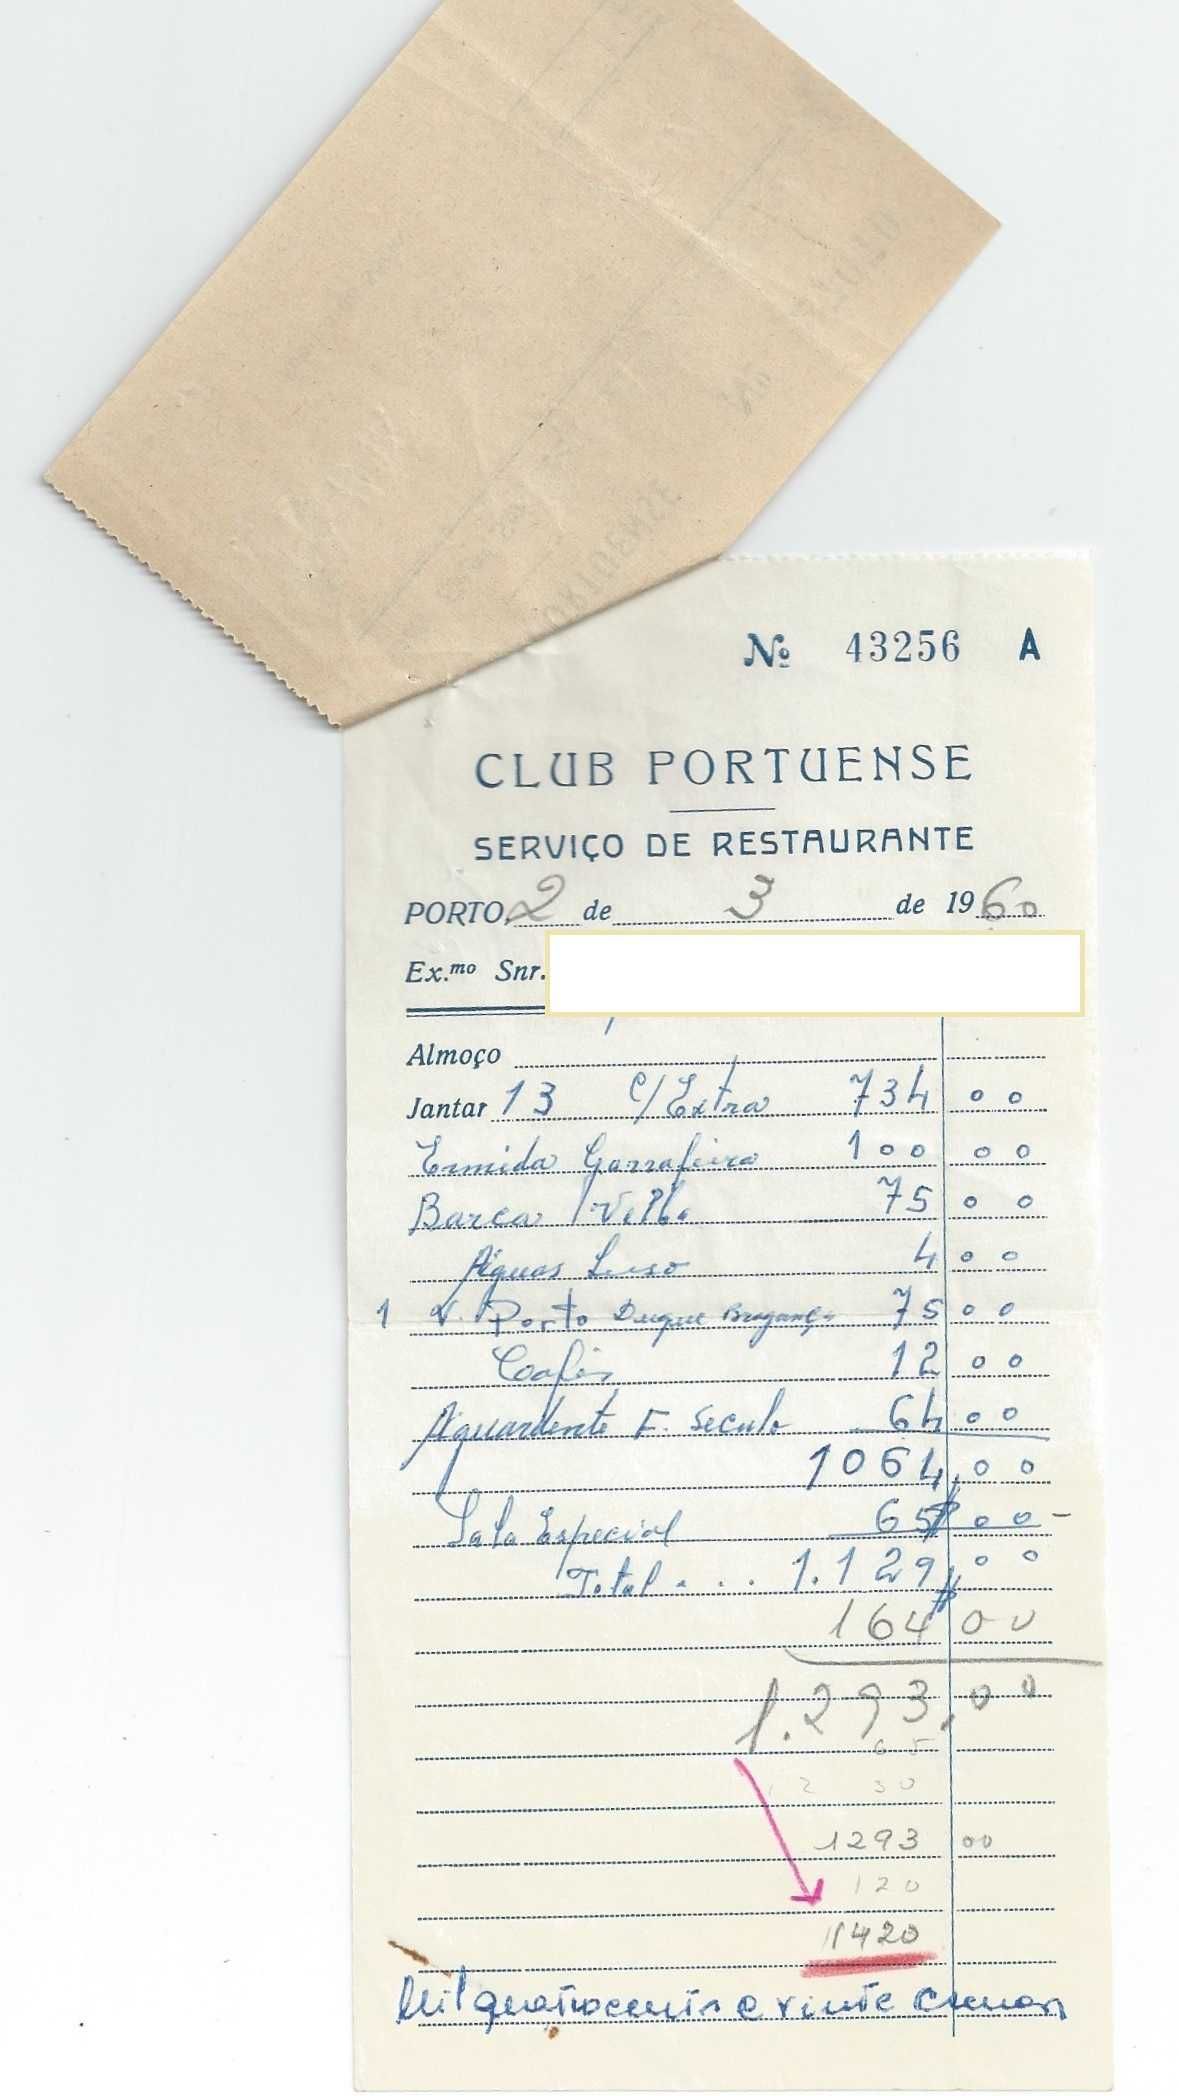 Nº 43256 A
CLUB PORTUENSE
SERVIÇO DE RESTAURANTE
PORTO, 2 de 3 de 1960
Ex.mo Snr.
Almoço
Jantar 13 c/ Extra 734 00
Ermida Garrafeira 100 00
Barca Velha 75 00
Águas Luso 4 00
1 V. Porto Duque Bragança 75 00
Cafés 12 00
Aguardente F. Seculo 64 00
1064,00
Sala Especial 65$00
Total . . . 1.129$00
164 00
1.293,00
65
12 30
1293 00
120
1420
Mil quatrocentos e vinte